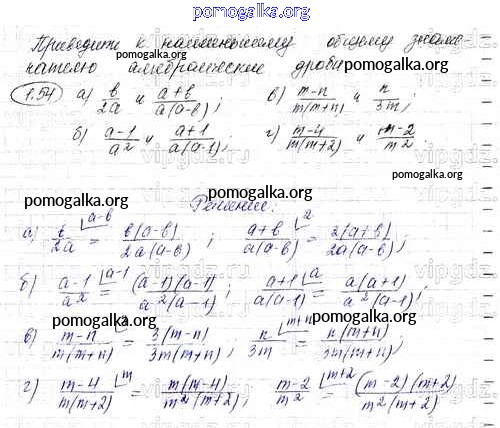 pomogalka.org
Приведите к наименьшему общему знаме-
нателю алгебраические дроби
pomogalka.org
1.54 а) b/2a и (a+b)/(a(a-b)); в) (m-n)/(m(m+n)) и n/3m;
б) (a-1)/a² и (a+1)/(a(a-1)); г) (m-4)/(m(m+2)) и (m-2)/m²
pomogalka.org
pomogalka.org
Решение:
а) b/2a ⌊a-b = b(a-b)/(2a(a-b)); (a+b)/(a(a-b)) ⌊2 = 2(a+b)/(2a(a-b));
pomogalka.org
б) (a-1)/a² ⌊a-1 = (a-1)(a-1)/(a²(a-1)); (a+1)/(a(a-1)) ⌊a = a(a+1)/(a²(a-1));
pomogalka.org
pomogalka.org
в) (m-n)/(m(m+n)) = 3(m-n)/(3m(m+n)); n/3m ⌊m+n = n(m+n)/(3m(m+n));
pomogalka.org
г) (m-4)/(m(m+2)) ⌊m = m(m-4)/(m²(m+2)); (m-2)/m² ⌊m+2 = (m-2)(m+2)/(m²(m+2));